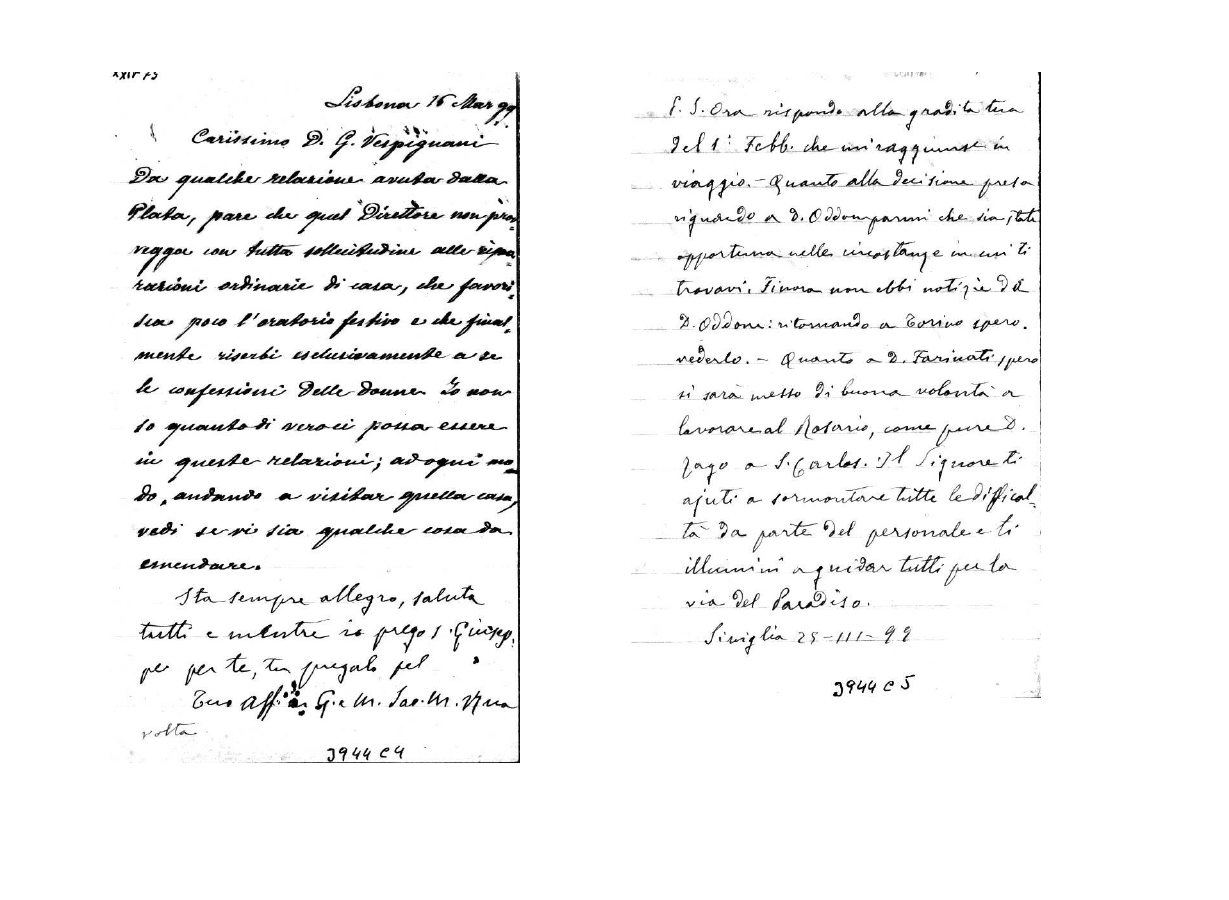 Lisbona 16 Mar 99
Carissimo D. G. Vespignani
Da qualche relazione avuta dalla
Plata, pare che quel Direttore non prov-
vegga con tutta sollecitudine alle ripa-
razioni ordinarie di casa, che favori-
sca poco l'oratorio festivo e che final-
mente riserbi esclusivamente a se
le confessioni delle donne. Io non
so quanto di vero ci possa essere
in queste relazioni; ad ogni mo-
do, andando a visitar quella casa,
vedi se vi sia qualche cosa da
emendare.
Sta sempre allegro, saluta
tutti e mentre io prego S. Giusep-
pe per te, tu pregalo pel
Tuo Aff. in G. e M. Sac. M. Rua
volta
3944 C 4
P. S. Ora rispondo alla gradita tua
del 1° Febb. che mi raggiunse in
viaggio. - Quanto alla decisione presa
riguardo a D. Oddone parmi che sia stata
opportuna nelle circostanze in cui ti
trovavi. Finora non ebbi notizie di
D. Oddone: ritornando a Torino spero
vederlo. - Quanto a D. Farinati spero
si sarà messo di buona volontà a
lavorare al Rosario, come pure D.
Zago a S. Carlos. Il Signore ti
ajuti a sormontare tutte le difficol-
tà da parte del personale e ti
illumini a guidar tutti per la
via del Paradiso.
Siviglia 25-III-99
3944 C 5